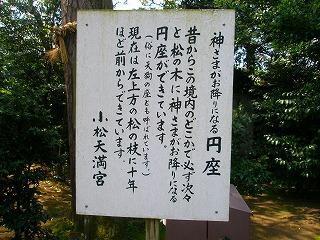 神さまがお降りになる 円座
昔からこの境内のどこかで必ず次々
と松の木に神さまがお降りになる
円座ができています。
（俗に天狗の座とも呼ばれています。）
現在は左上方の松の枝に十年
ほど前からできています。
小松天満宮